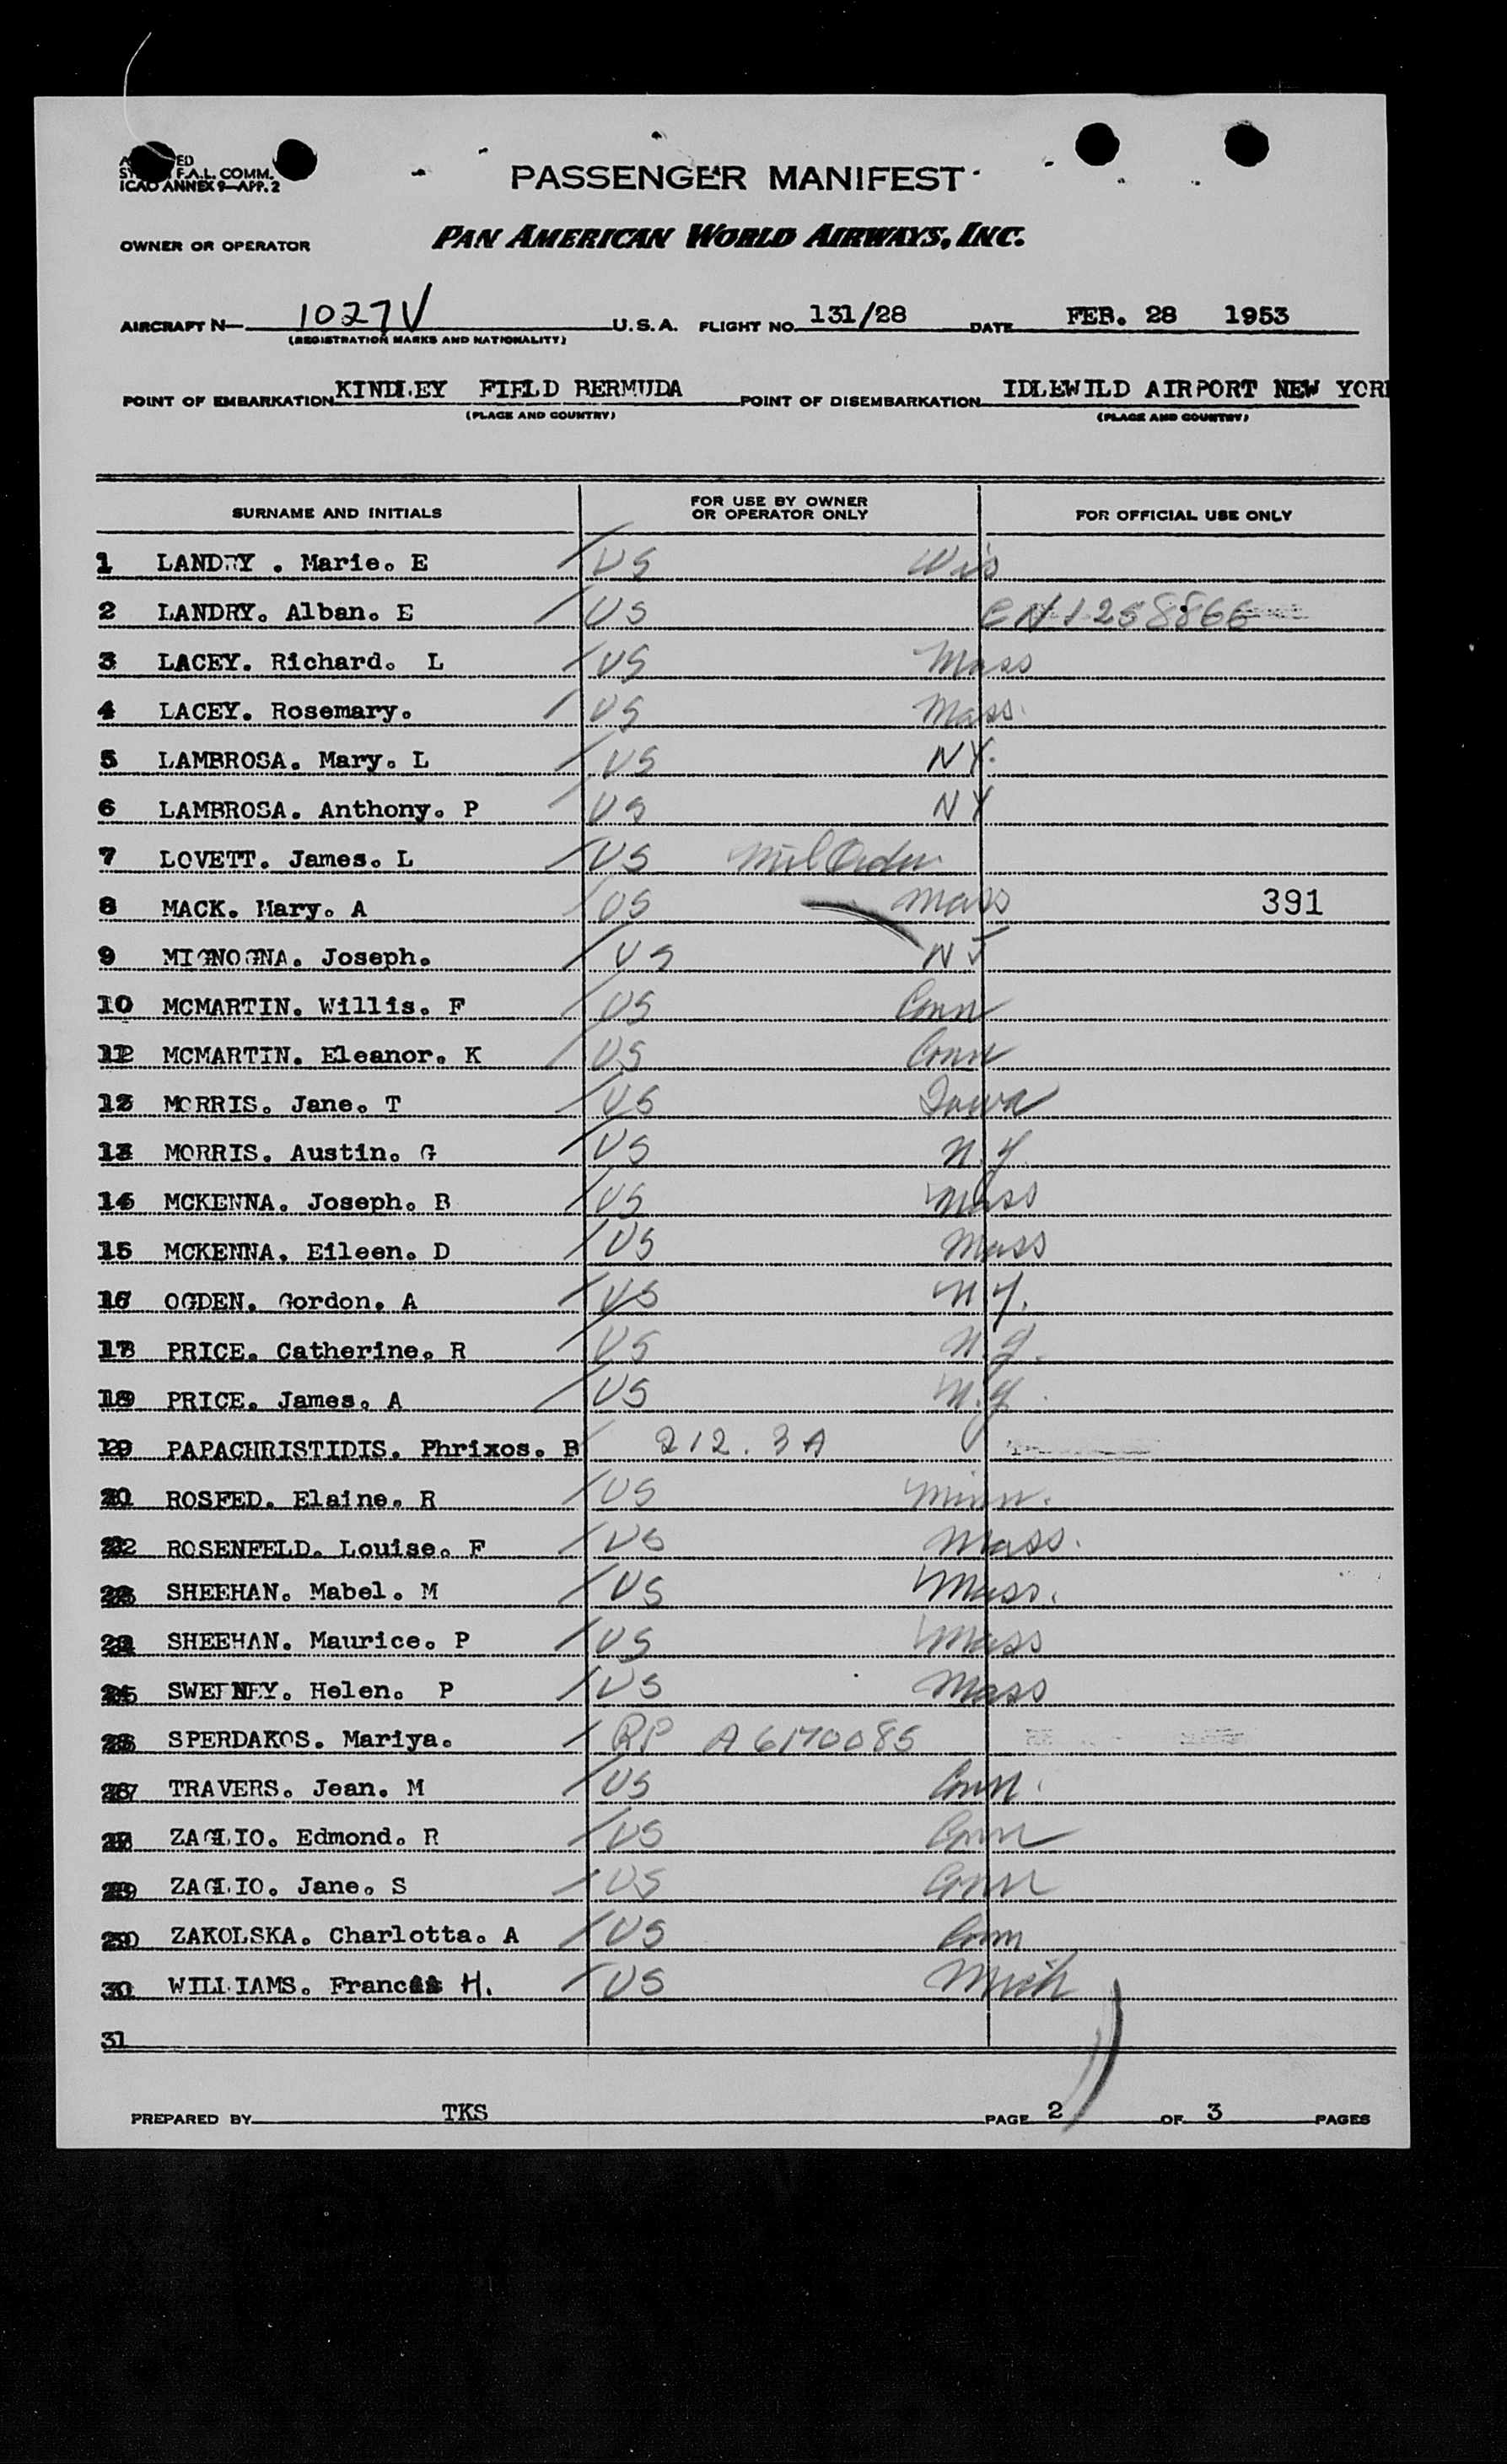 ED
F.A.L. COMM.
ICAO ANNEX 9—APP. 2
PASSENGER MANIFEST
OWNER OR OPERATOR PAN AMERICAN WORLD AIRWAYS, INC.
AIRCRAFT N— 1027V U.S.A. FLIGHT NO. 131/28 DATE FEB. 28 1953
(REGISTRATION MARKS AND NATIONALITY)
POINT OF EMBARKATION KINDLEY FIELD BERMUDA POINT OF DISEMBARKATION IDLEWILD AIRPORT NEW YORK
(PLACE AND COUNTRY) (PLACE AND COUNTRY)
SURNAME AND INITIALS FOR USE BY OWNER OR OPERATOR ONLY FOR OFFICIAL USE ONLY
1 LANDRY . Marie. E / US Wis
2 LANDRY. Alban. E / US CN 1258866
3 LACEY. Richard. L / US Mass
4 LACEY. Rosemary. / US Mass.
5 LAMBROSA. Mary. L / US NY.
6 LAMBROSA. Anthony. P / US NY
7 LOVETT. James. L / US Mil Order
8 MACK. Mary. A / US Mass 391
9 MIGNOGNA. Joseph. / US NJ
10 MCMARTIN. Willis. F / US Conn
MCMARTIN. Eleanor. K / US Conn
MORRIS. Jane. T / US Iowa
MORRIS. Austin. G / US N.Y.
MCKENNA. Joseph. B / US Mass
15 MCKENNA. Eileen. D / US Mass
16 OGDEN. Gordon. A / US N.Y.
PRICE. Catherine. R / US N.Y.
PRICE. James. A / US N.Y.
PAPACHRISTIDIS. Phrixos. B / 212.3A
ROSFED. Elaine. R / US Minn.
ROSENFELD. Louise. F / US Mass.
SHEEHAN. Mabel. M / US Mass.
SHEEHAN. Maurice. P / US Mass
SWEENEY. Helen. P / US Mass
SPERDAKOS. Mariya. / RP A6170085
TRAVERS. Jean. M / US Conn.
ZAGLIO. Edmond. R / US Conn
ZAGLIO. Jane. S / US Conn
ZAKOLSKA. Charlotta. A / US Conn
30 WILLIAMS. Francis H. / US Mich
31
PREPARED BY TKS PAGE 2 OF 3 PAGES